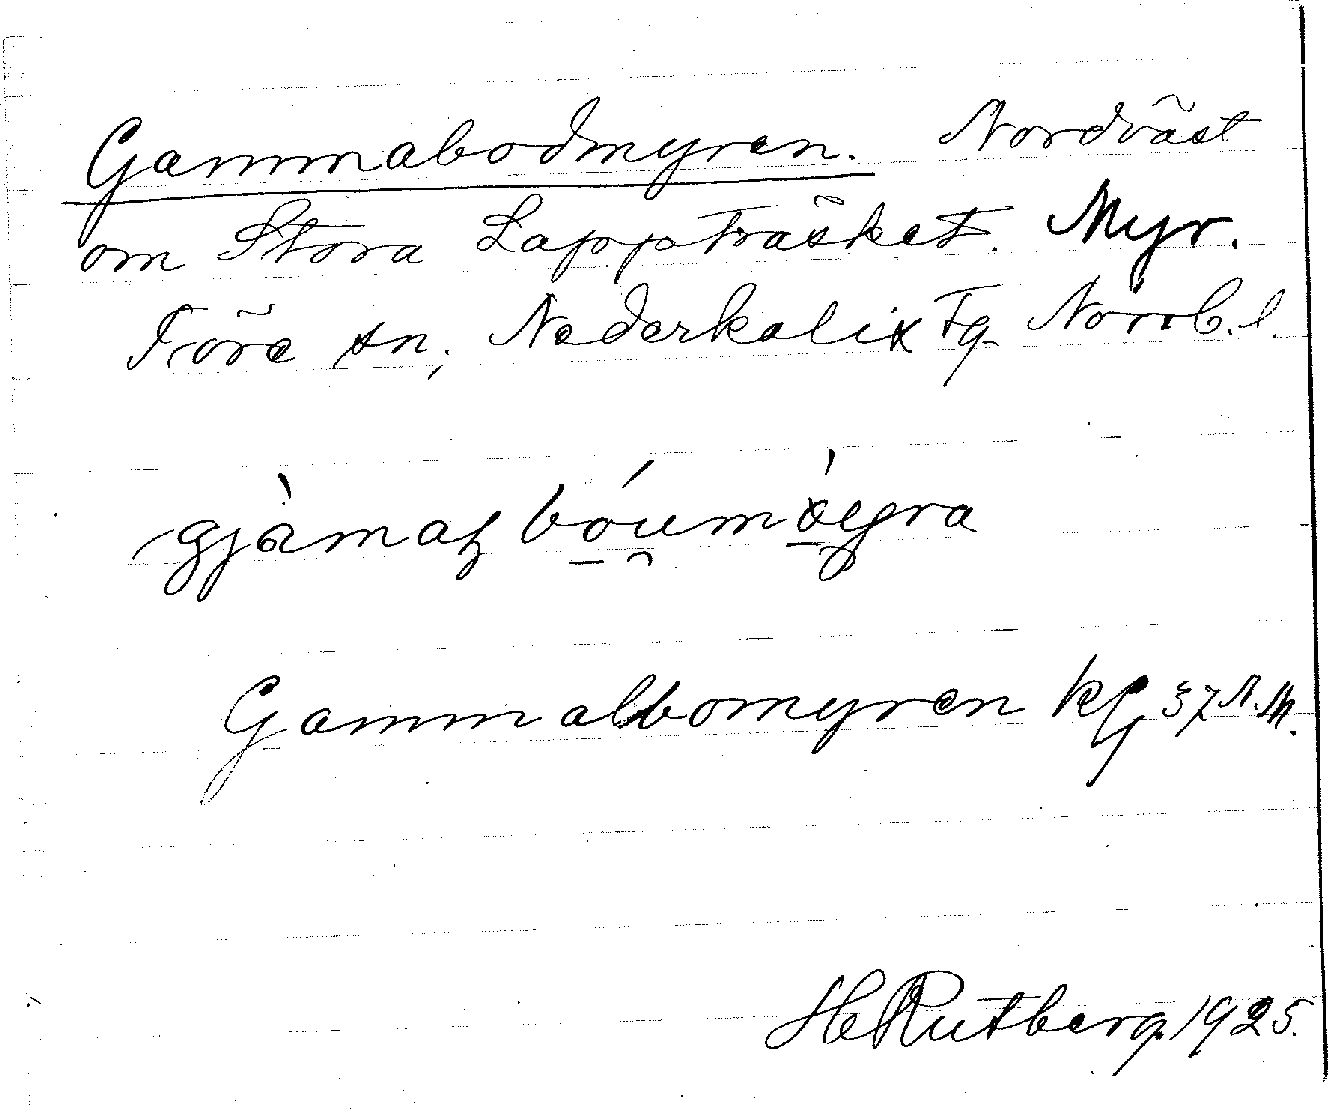 Gammabodmyren. Nordväst
om Stora Lappträsket. Myr.
Töre sn, Nederkalix Tg Norrb. l.
gjàmaʈ bóu̯mògra
Gammalbomyren kG 37 N.M.
H Rutberg. 1925.